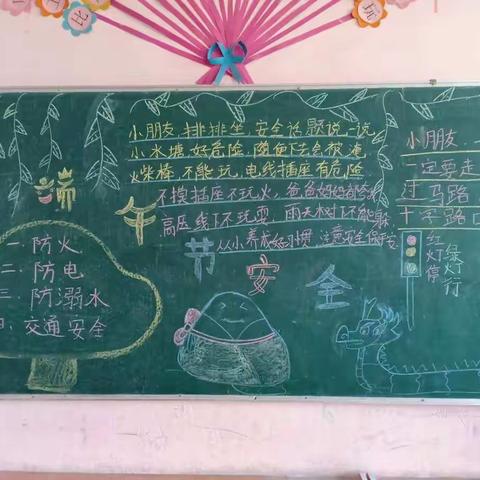 小朋友,排排坐,安全话题说一说
小水塘,好危险,随便下去会被淹
火柴棒,不能玩,电线插座有危险
不摸插座不玩火,爸爸妈妈
高压线下不玩耍,雨天树下不能躲
从小养成好习惯,注意安全保平安
端午节安全
一.防火
二.防电
三.防溺水
四.交通安全
小朋友
一定要走
过马路
十字路口
红灯停
绿灯行